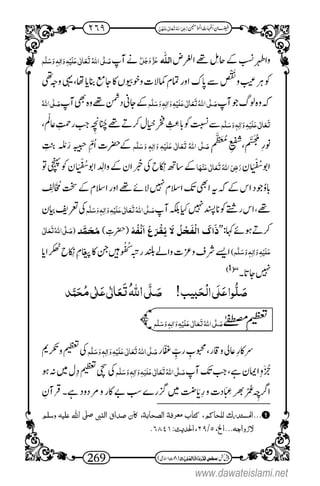 فیضانِ امہات المؤمنین رَضِیَ اللہُ تَعَالٰی عَنْہُنَّ ٢٦٩
واطہر نسب کے حامل تھے الغرض اللہ عَزَّوَجَلَّ نے آپ صَلَّی اللہُ تَعَالٰی عَلَیْہِ وَاٰلِہٖ وَسَلَّم
کو ہر عیب و نقص سے پاک اور تمام کمالات و خوبیوں کا جامع بنایا تھا، یہی وجہ تھی
کہ وہ لوگ جو آپ صَلَّی اللہُ تَعَالٰی عَلَیْہِ وَاٰلِہٖ وَسَلَّم کے جانی دشمن تھے وہ بھی آپ صَلَّی اللہُ
تَعَالٰی عَلَیْہِ وَاٰلِہٖ وَسَلَّم سے نسبت کو باعثِ فخر خیال کرتے تھے چنانچہ جب رحمتِ عالَم،
نورِ مُجَسَّم، شفیعِ مُعَظَّم صَلَّی اللہُ تَعَالٰی عَلَیْہِ وَاٰلِہٖ وَسَلَّم کے حضرت اُمِّ حبیبہ رملہ بنتِ
ابوسُفیان رَضِیَ اللہُ تَعَالٰی عَنْہَا کے ساتھ نکاح کی خبر ان کے والد ابوسُفیان کو پہنچی تو
باوُجود اس کے کہ یہ ابھی تک اسلام نہیں لائے تھے اور اسلام کے سخت مُخالِف
تھے، اس رشتے کو ناپسند نہیں کیا بلکہ آپ صَلَّی اللہُ تَعَالٰی عَلَیْہِ وَاٰلِہٖ وَسَلَّم کی تعریف بیان
کرتے ہوئے کہا: ’’ذَاكَ الْفَحْلُ لَا يُقْرَعُ اَنْفُهُ (حضرت) مُحَمَّد (صَلَّی اللہُ تَعَالٰی
عَلَیْہِ وَاٰلِہٖ وَسَلَّم) ایسے شرف و عزت والے بلند رتبہ کفو ہیں جن کا پیغامِ نکاح ٹھکرایا
نہیں جاتا۔‘‘ (1)
صَلُّوا عَلَى الْحَبِيب! صَلَّى اللهُ تَعَالٰى عَلٰى مُحَمَّد
تعظیمِ مصطفےٰ صَلَّی اللہُ تَعَالٰی عَلَیْہِ وَاٰلِہٖ وَسَلَّم
سرکارِ عالی وقار، محبوبِ ربِّ غفّار صَلَّی اللہُ تَعَالٰی عَلَیْہِ وَاٰلِہٖ وَسَلَّم کی تعظیم و تکریم
جُزوِ ایمان ہے، جب تک آپ صَلَّی اللہُ تَعَالٰی عَلَیْہِ وَاٰلِہٖ وَسَلَّم کی سچی تعظیم دل میں نہ ہو
اگرچہ عمر بھر عبادت و ریاضت میں گزرے سب بے کار و مردود ہے۔ قرآن
1 ...المستدرك للحاكم، كتاب معرفة الصحابة، كان صداق النبى صلى الله عليه وسلم
لازواجه...الخ، ٢٩/٥، الحديث: ٦٨٤١.
269
www.dawateislami.net